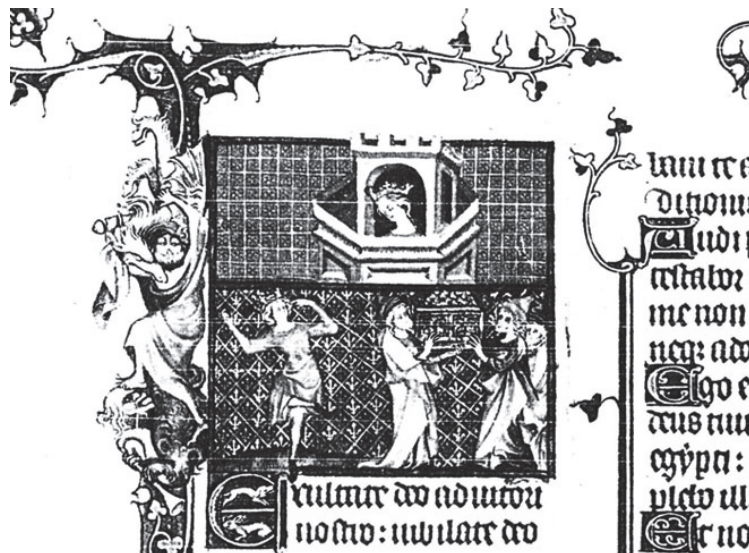 Exultate deo adiutori
nostro: iubilate deo
baui te a
Audi p
testabor
me non
neqꝫ ado
Ego e
deus tuu
egypti:
plebo ill
Et no